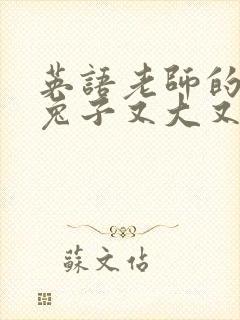 英語老師的
兔子又大又
蘇文佔